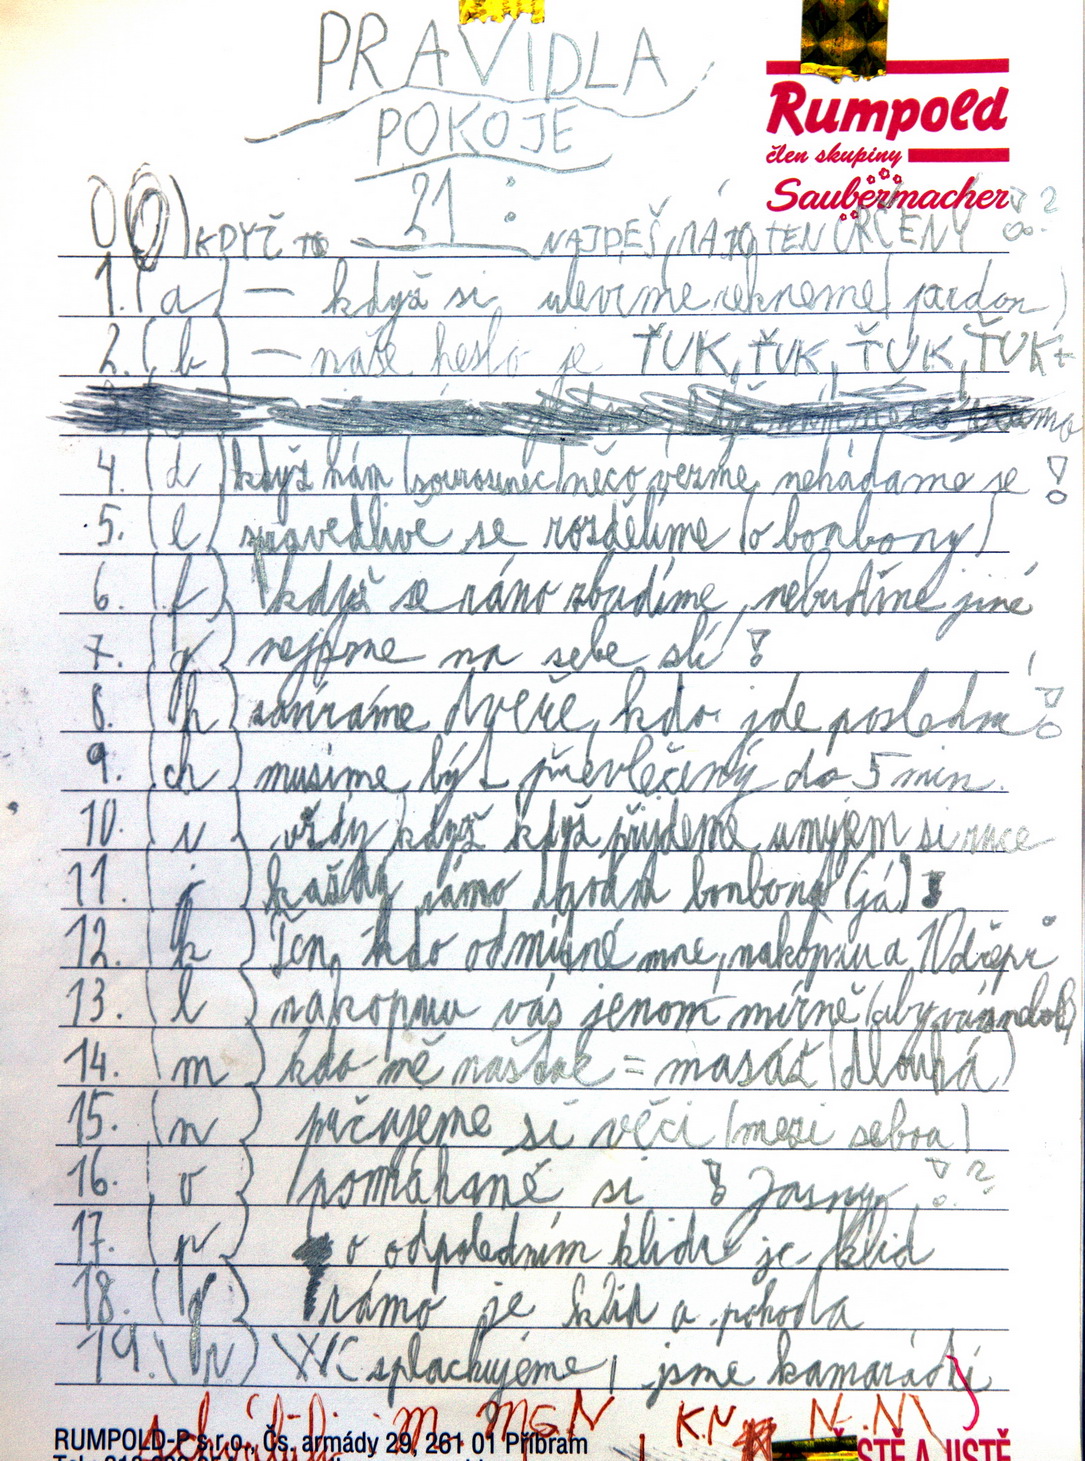 PRAVIDLA
POKOJE
Rumpold
člen skupiny
Saubermacher
21 :
0 0) KDYŽ TO NAJDEŠ, MÁ TO TEN URČENÝ !?
1. (a) – když si ulevíme řekneme (pardon)
2. (b) – naše heslo je ŤUK, ŤUK, ŤUK, ŤUK+
4. (d) když nám (sourozenec) něco vezme, nehádáme se !
5. (e) spravedlivě se rozdělíme (o bonbony)
6. (f) když se ráno zbudíme, nebudíme jiné
7. (g) nejsme na sebe zlí !
8. (h) zavíráme dveře, kdo jde poslední !
9. (ch) musíme být převlečený do 5 min.
10. (i) vždy když když přijdeme umyjem si ruce
11. (j) každý ráno bonbony (já)
12. (k) Ten, kdo odmítne mne, nakopnu a 10 dřepů
13. (l) nakopnu vás jenom mírně (aby
14. (m) kdo mě naštve = masáž (dlouhá)
15. (n) půčujeme si věci (mezi sebou)
16. (o) pomáháme si ! Jasný !?
17. (p) o odpoledním klidu je klid
18. (q) ráno je klid a pohoda
19. (r) WC splachujeme, jsme kamarádi
Schválili: M. MGN KN N.N
RUMPOLD-P s.r.o., Čs. armády 29, 261 01 Příbram
ČISTĚ A JISTĚ